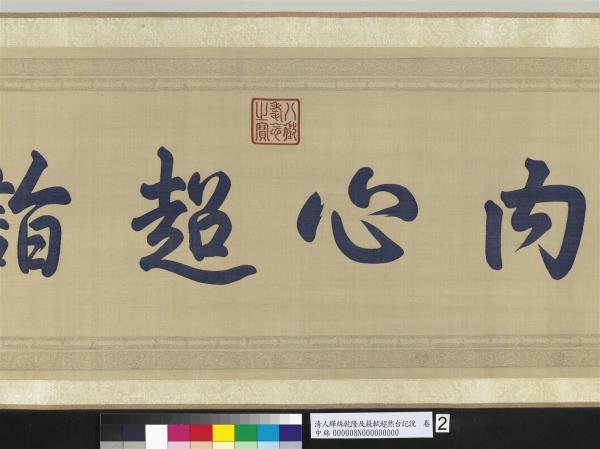 内心超詣
八徵耄念之寶
清人緙絲乾隆及蘇軾超然台記說 卷
中絲 000008N000000000
2